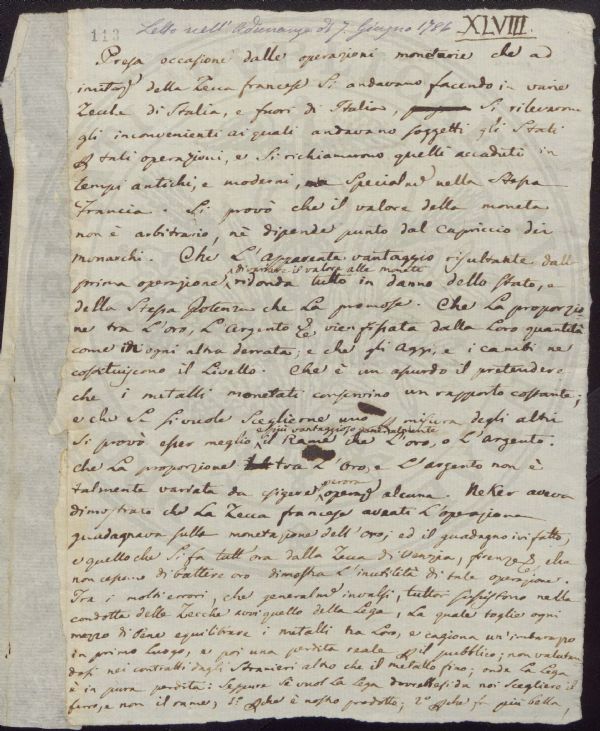 113 Letto nell'Adunanza di 7. Giugno 1786 XLVIII.
Presa occasione dalle operazioni monetarie che ad
imitaze della Zecca francese si andavano facendo in varie
Zecche di Italia, e fuori di Italia, si rilevarono
gli inconvenienti ai quali andavano soggetti gli Stati
p tali operazioni, e si richiamarono quelli accaduti in
tempi antichi, e moderni, specialme nella stessa
Francia. Si provò che il valore della moneta
non è arbitrario, nè dipende punto dal capriccio dei
monarchi. Che l'apparente vantaggio risultante dalla
prima operazione di alzare il valore alle monete ridonda tutto in danno dello Stato, e
della stessa Potenza che la promosse. Che la proporzio
ne tra l'oro, l'argento &c vien fissata dalla loro quantità
come in ogni altra derrata; e che gli aggi, e i cambi ne
costituiscono il livello. Che è un assurdo il pretendere
che i metalli monetati conservino un rapporto costante;
e che se si vuole sceglierne uno p misura degli altri
si provò esser meglio, e più vantaggioso generalmente il Rame che l'oro, o l'argento.
che la proporzione tra l'oro, e l'argento non è
talmente variata da esigere operaze alcuna. Neker aveva
dimostrato che la Zecca francese avanti l'operazione
guadagnava sulla monetazione dell'oro; ed il guadagno ivi fatto,
e quello che si fa tutt'ora dalla Zecca di Venezia, firenze &c che
non cessano di battere oro dimostra l'inutilità di tale operazione.
Tra i molti errori, che generalme invalsi, tuttor sussistono nella
condotta delle Zecche avvi quello della Lega, la quale toglie ogni
mezzo di bene equilibrare i metalli tra loro, e cagiona un'imbarazzo
in primo luogo, e poi una perdita reale p il pubblico; non valutan
dosi nei contratti dagli Stranieri altro che il metallo fino; onde la Lega
è in pura perdita: Seppure se vuol la Lega dovrebbesi da noi scegliere il
ferro, e non il rame, 1° pche è nostro prodotto; 2° pche fa più bella,